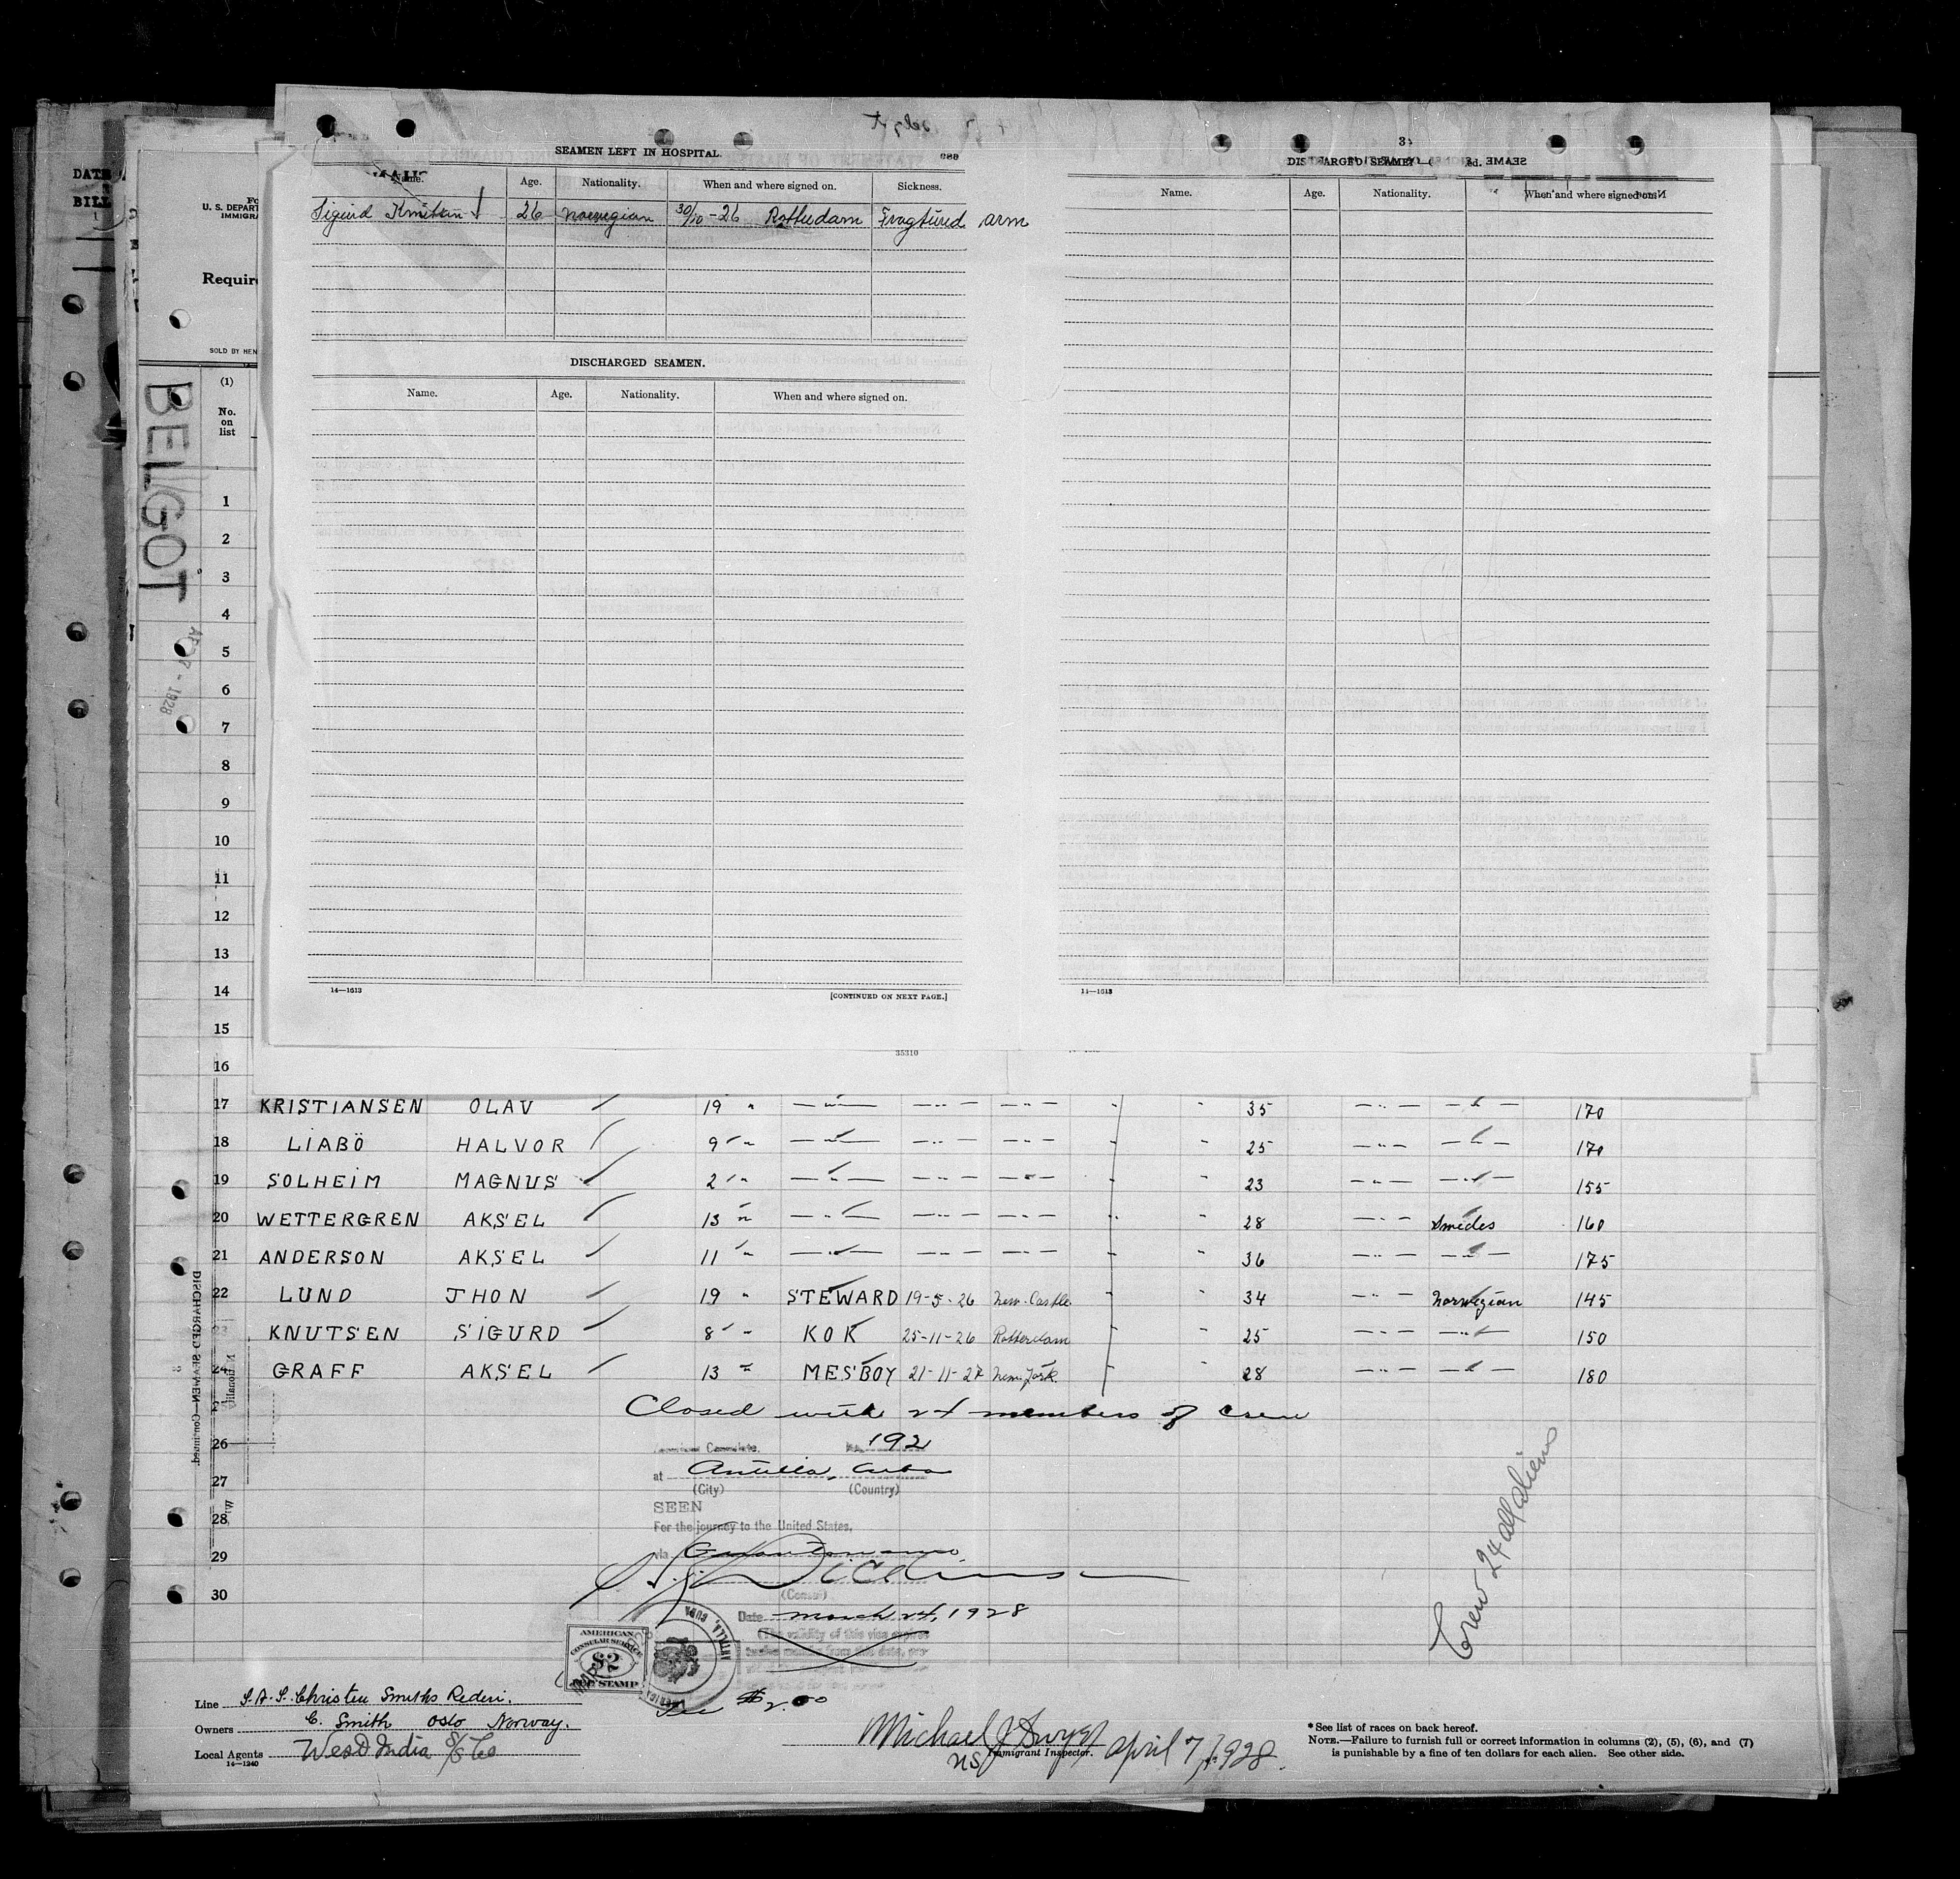 SEAMEN LEFT IN HOSPITAL.
Name. Age. Nationality. When and where signed on. Sickness.
Sigurd 26 Norwegian 30/10-26 Rotterdam Fragtured arm
DISCHARGED SEAMEN.
Name. Age. Nationality. When and where signed on.
14—1613
[CONTINUED ON NEXT PAGE.]
3
DISCHARGED SEAMEN
Name. Age. Nationality. When and where signed on.
14—1613
35310
DATE
BILL
U. S. DEPART
IMMIGRA
Require
SOLD BY HEN
(1)
No.
on
list
BELGOT
7 - 1928
1
2
3
4
5
6
7
8
9
10
11
12
13
14
15
16
17 KRISTIANSEN OLAV 19 " — " — — " — — " — " " 35 — " — — " — 170
18 LIABÖ HALVOR 9 " — " — — " — — " — " " 25 — " — — " — 170
19 SOLHEIM MAGNUS 2 " — " — — " — — " — " " 23 — " — — " — 155
20 WETTERGREN AKSEL 13 " — " — — " — — " — " " 28 — " — Swedes 160
21 ANDERSON AKSEL 11 " — " — — " — — " — " " 36 — " — — " — 175
22 LUND JHON 19 " STEWARD 19-5-26 New-Castle " " 34 — " — Norwegian 145
23 KNUTSEN SIGURD 8 " KOK 25-11-26 Rotterdam " " 25 — " — — " — 150
24 GRAFF AKSEL 13 " MESBOY 21-11-27 New-York. " " 28 — " — — " — 180
Closed with 24 members of crew
26
27
28
29
30
DISCHARGED SEAMEN—Continued.
No. 192
at Antilla, Cuba
(City) (Country)
SEEN
For the journey to the United States,
via Guantanamo
(Consul)
Date March 24, 1928
(The validity of this visa expires
AMERICAN
CONSULAR SERVICE
$2
FEE STAMP
ANTILLA, CUBA
Fee $2.00
Crew 24 all aliens
Line S.A.S. Christen Smiths Rederi.
Owners C. Smith Oslo Norway.
Local Agents West India S/S Co
14—1240
Michael J Dwyer
US Immigrant Inspector. April 7, 1928.
* See list of races on back hereof.
NOTE.—Failure to furnish full or correct information in columns (2), (5), (6), and (7)
is punishable by a fine of ten dollars for each alien. See other side.